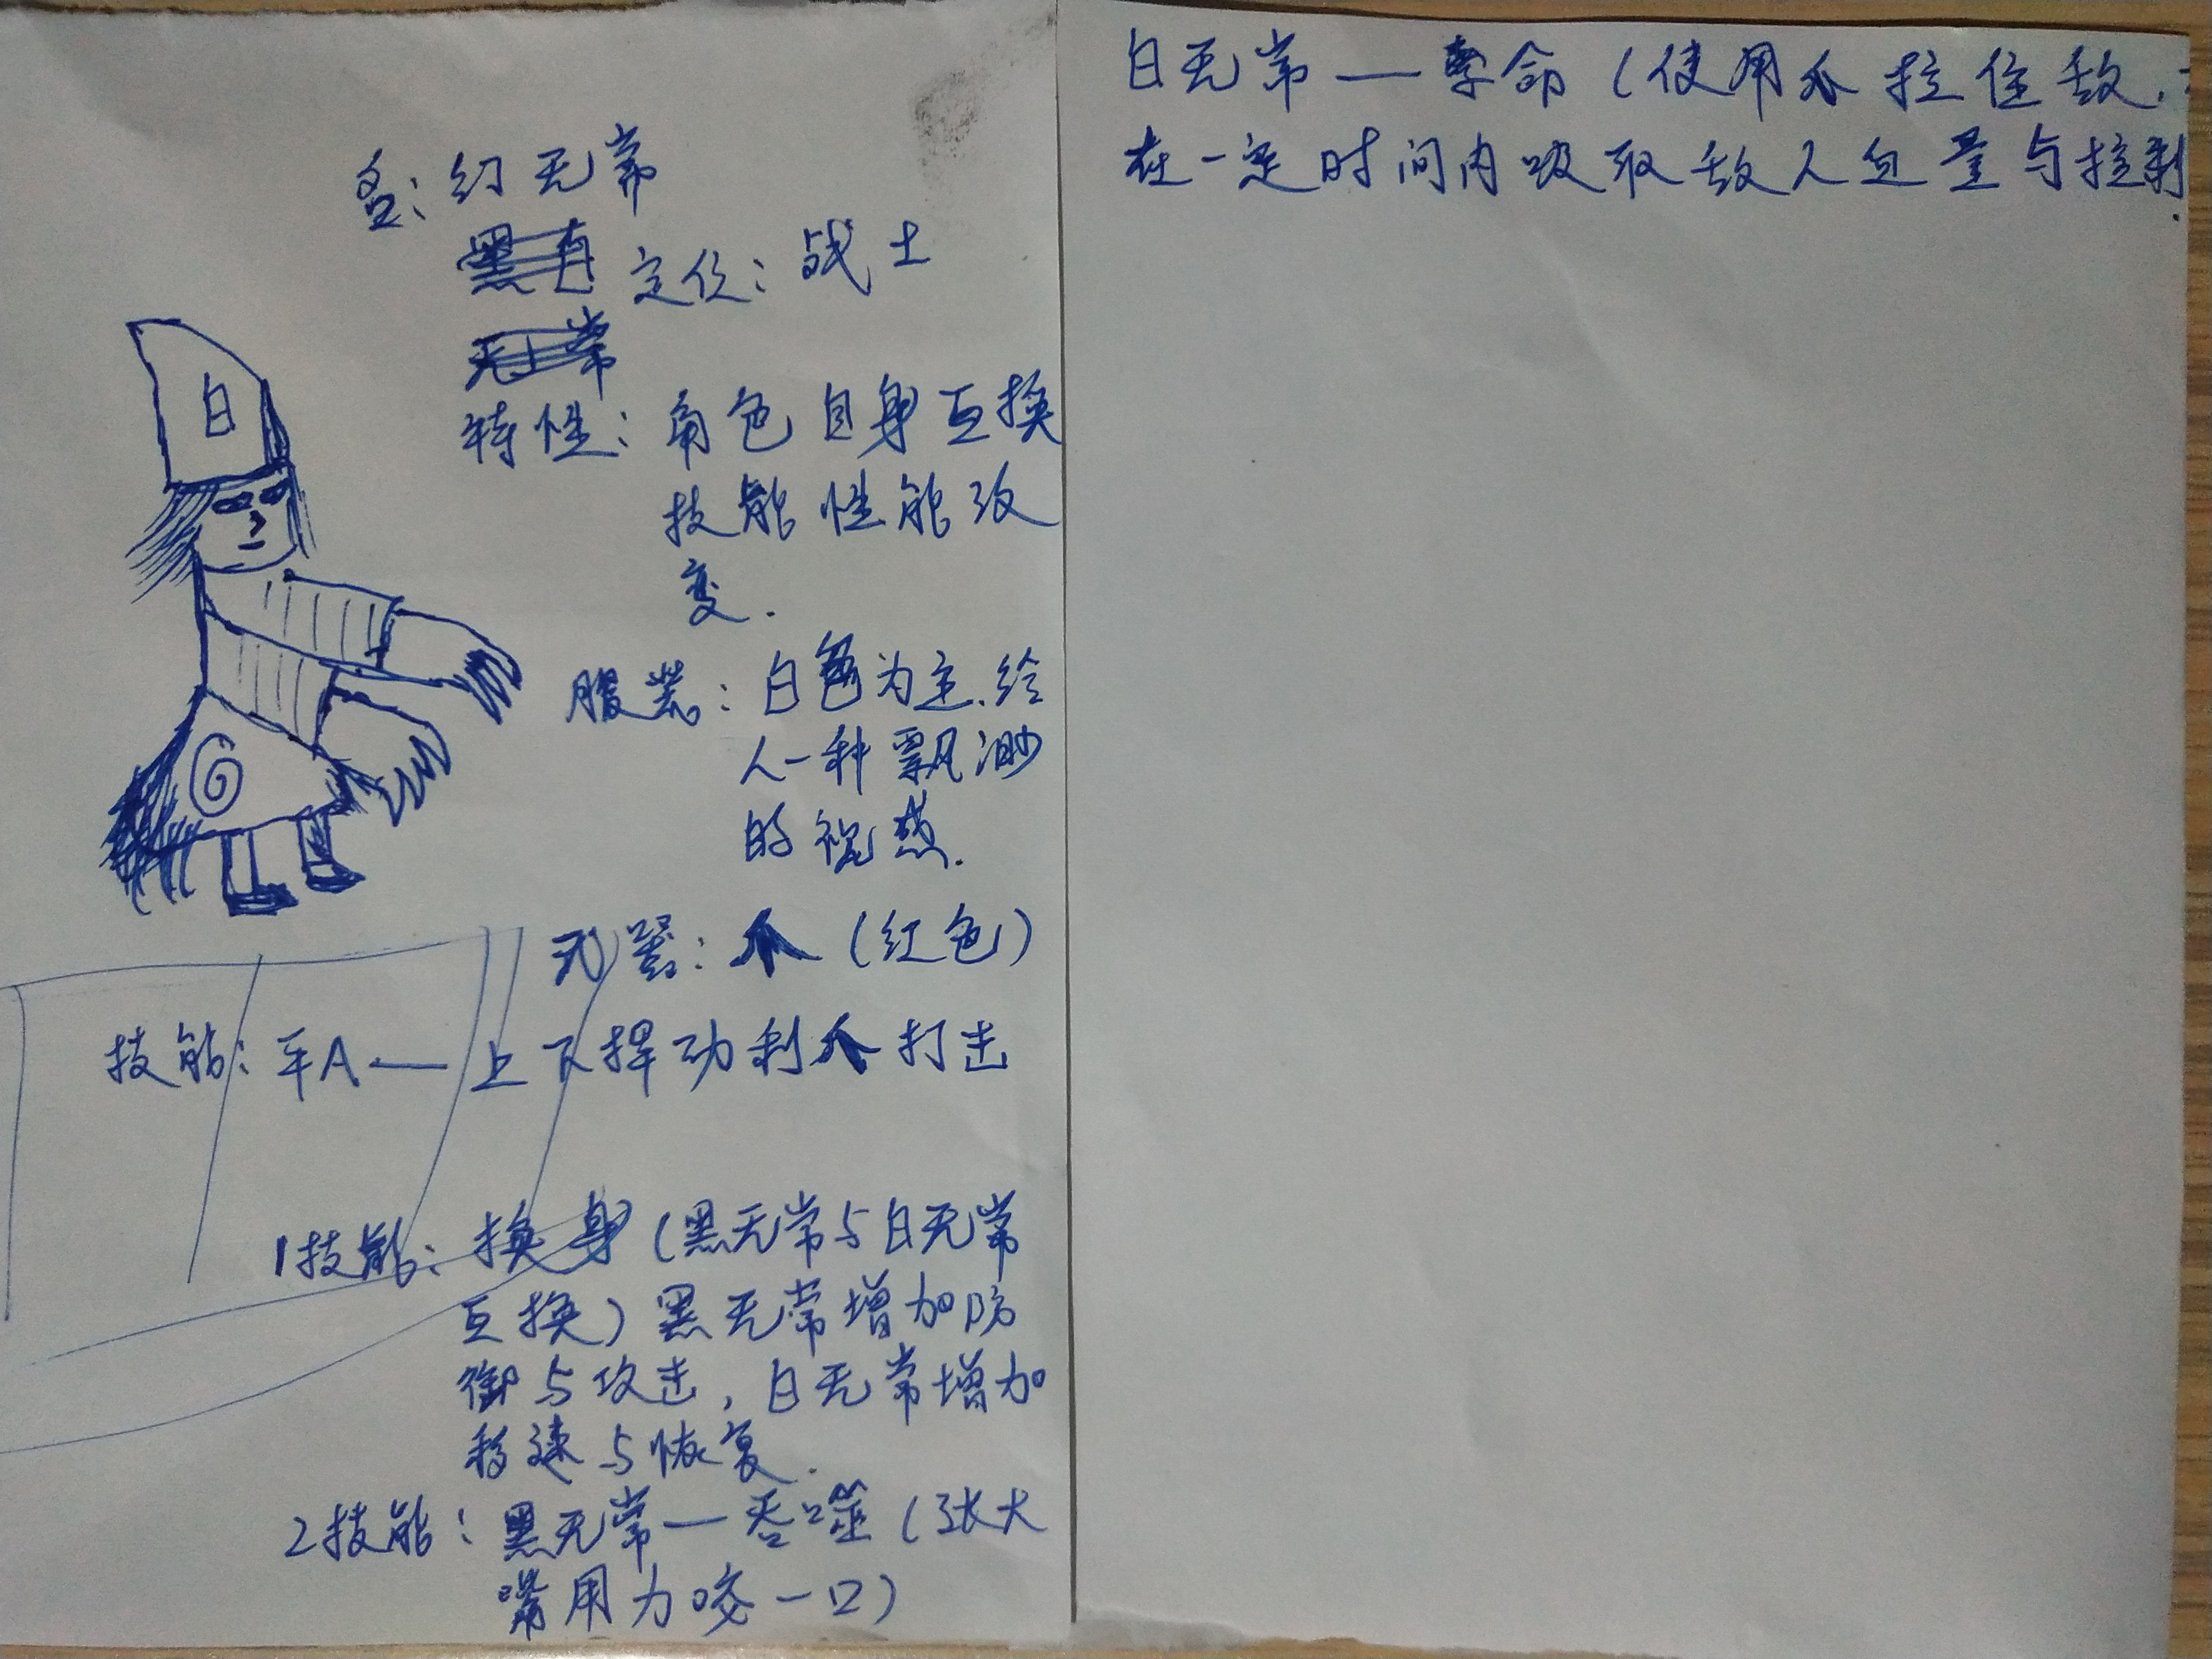 名:幻无常
黑白
定位:战士
无常
特性:角色自身互换
技能性能改
变.
服装:白色为主.给
人一种飘渺
的视感.
武器:爪(红色)
技能:平A—上下挥动利爪打击
1技能:换身(黑无常与白无常
互换)黑无常增加防
御与攻击,白无常增加
移速与恢复.
2技能:黑无常—吞噬(张大
嘴用力咬一口)
白
白无常—牵命(使用爪拉住敌
在一定时间内吸取敌人血量与拉利